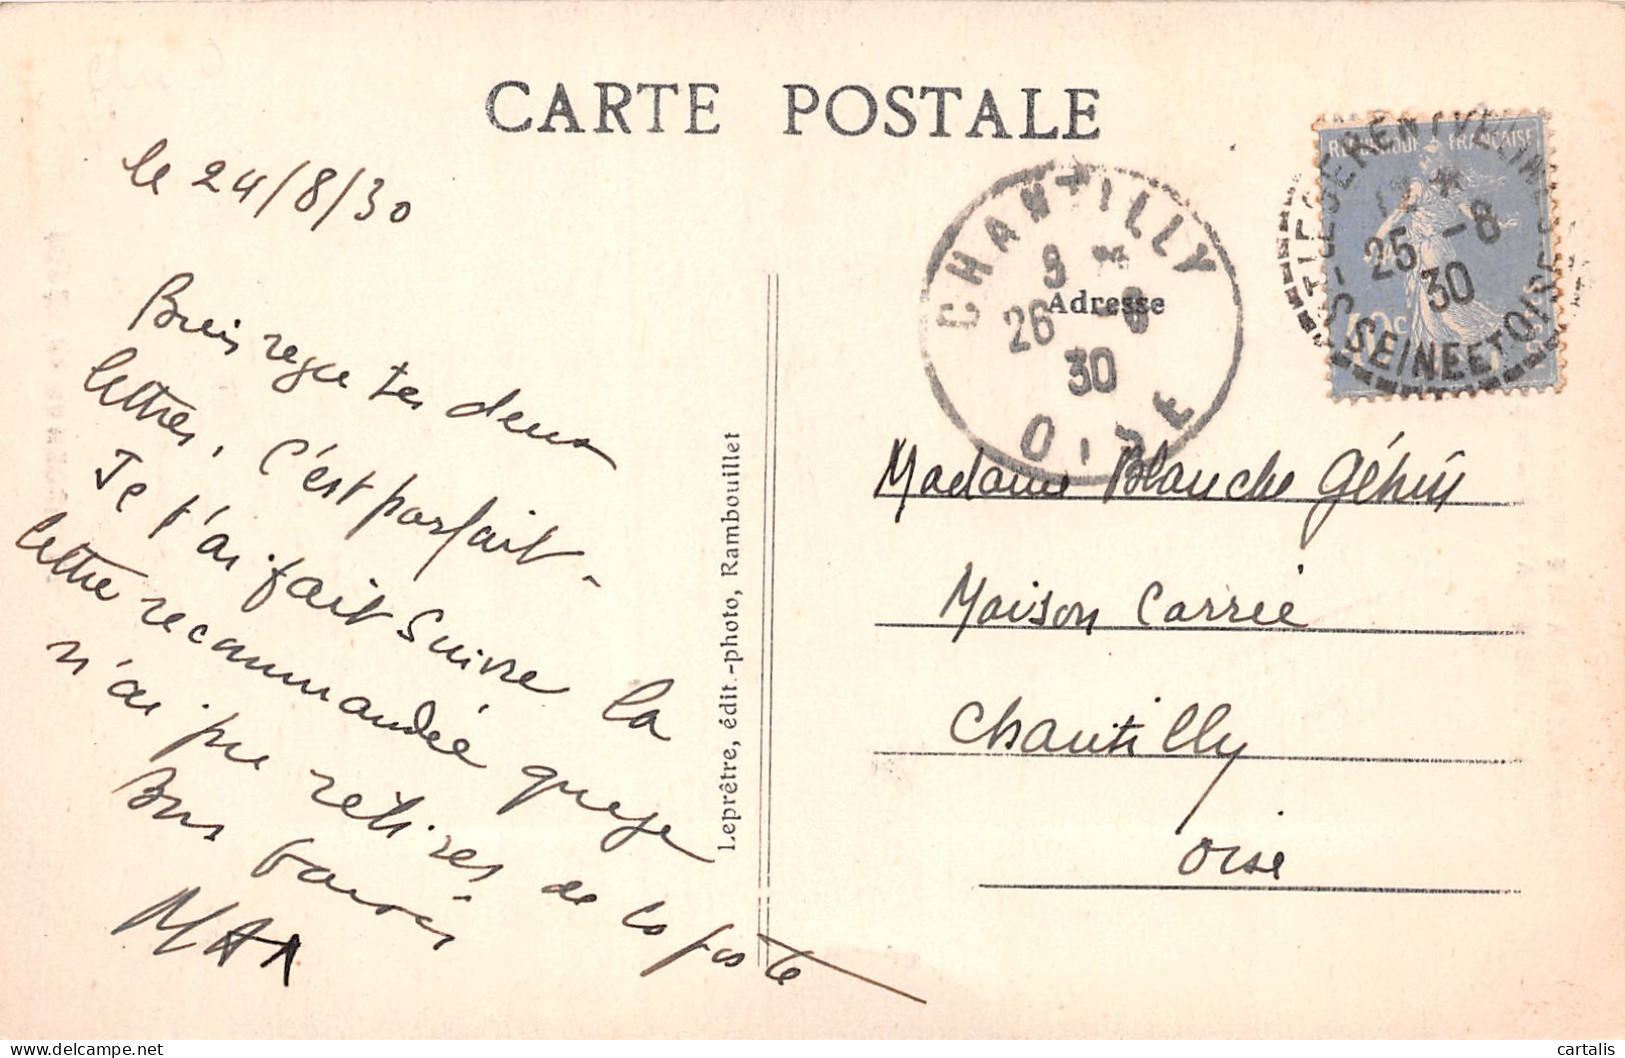 CARTE POSTALE
le 24/8/30
Bien reçu tes deux
lettres. C'est parfait -
Je t'ai fait suivre la
lettre recommandée que je
n'ai pu retirer de la poste
Bons baisers
Adresse
CHANTILLY
8 *
26 -8
30
OISE
REPUBLIQUE FRANÇAISE
ST-LEGER EN YVELINES
12 *
25 -8
30
SEINE ET OISE
Madame Blanche
Maison Carrée
Chantilly
Oise
Leprêtre, édit.-photo, Rambouillet
cartalis